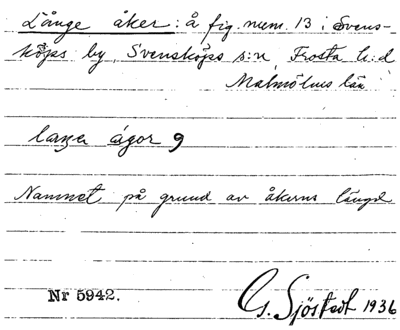 Långe åker: å fig. num. 13 i Svens-
köps by, Svensköps s:n, Frosta h:d
Malmöhus län
åger 9
Namnet på grund av åkerns längd
Nr 5942.
G. Sjöstedt 1936